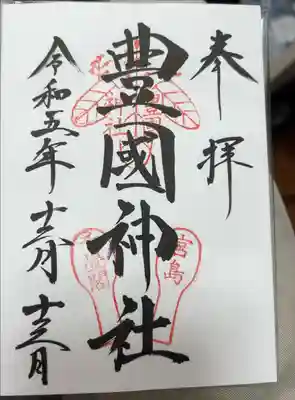 奉拝
豊國神社
宮島
令和五年十二月十二日